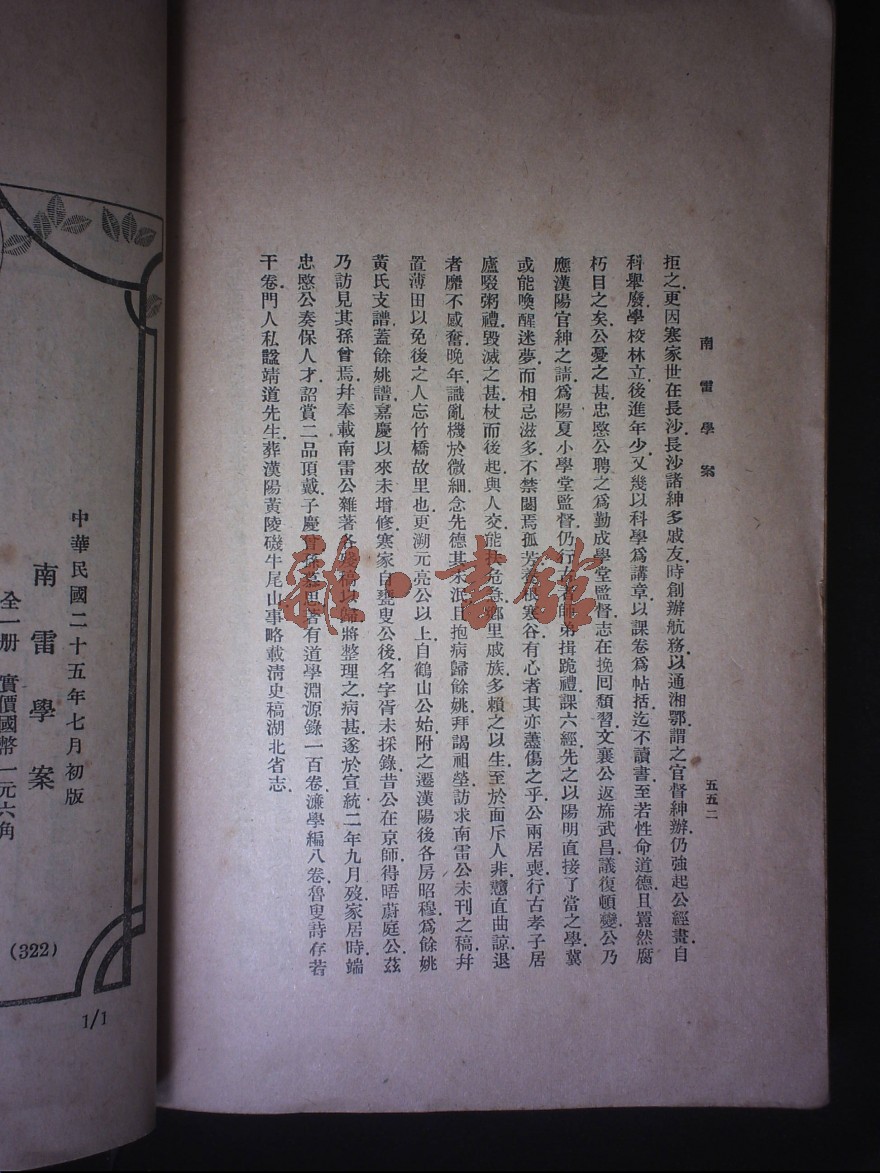 南雷學案
五五二
拒之．更因寒家世在長沙．長沙諸紳多戚友．時創辦航務．以通湘鄂．謂之官督紳辦．仍強起公經畫．自
科舉廢．學校林立．後進年少．又幾以科學爲講章．以課卷爲帖括．迄不讀書．至若性命道德．且囂然腐
朽目之矣．公憂之甚．忠愍公聘之爲勤成學堂監督．志在挽囘頹習．文襄公返旆武昌．議復頓變．公乃
應漢陽官紳之請．爲陽夏小學堂監督．仍行古者師弟揖跪禮．課六經．先之以陽明直接了當之學．冀
或能喚醒迷夢．而相忌滋多．不禁闋焉．孤芳 寒谷．有心者其亦蓋傷之乎．公兩居喪．行古孝子居
廬啜粥禮．毀滅之甚．杖而後起．與人交．能扶危急．鄉里戚族多賴之以生．至於面斥人非．戇直曲諒．退
者靡不感奮．晚年識亂機於微細．念先德其未泯．且抱病歸餘姚．拜謁祖塋．訪求南雷公未刊之稿．幷
置薄田．以免後之人忘竹橋故里也．更溯元亮公以上．自鶴山公始附之遷漢陽後各房昭穆．爲餘姚
黃氏支譜．蓋餘姚譜嘉慶以來未增修．寒家自甕叟公後．名字胥未採錄．昔公在京師．得晤蔚庭公．茲
乃訪見其孫曾焉．幷奉載南雷公雜著各殘稿以歸．將整理之．病甚．遂於宣統二年九月歿．家居時．端
忠愍公奏保人才．詔賞二品頂戴．子慶曾．孫慕思．著有道學淵源錄一百卷．濂學編八卷．魯叟詩存若
干卷．門人私諡靖道先生．葬漢陽黃陵磯牛尾山．事略載淸史稿．湖北省志．
雜·書館
中華民國二十五年七月初版
南雷學案
全一册　實價國幣一元六角
(322)
1/1